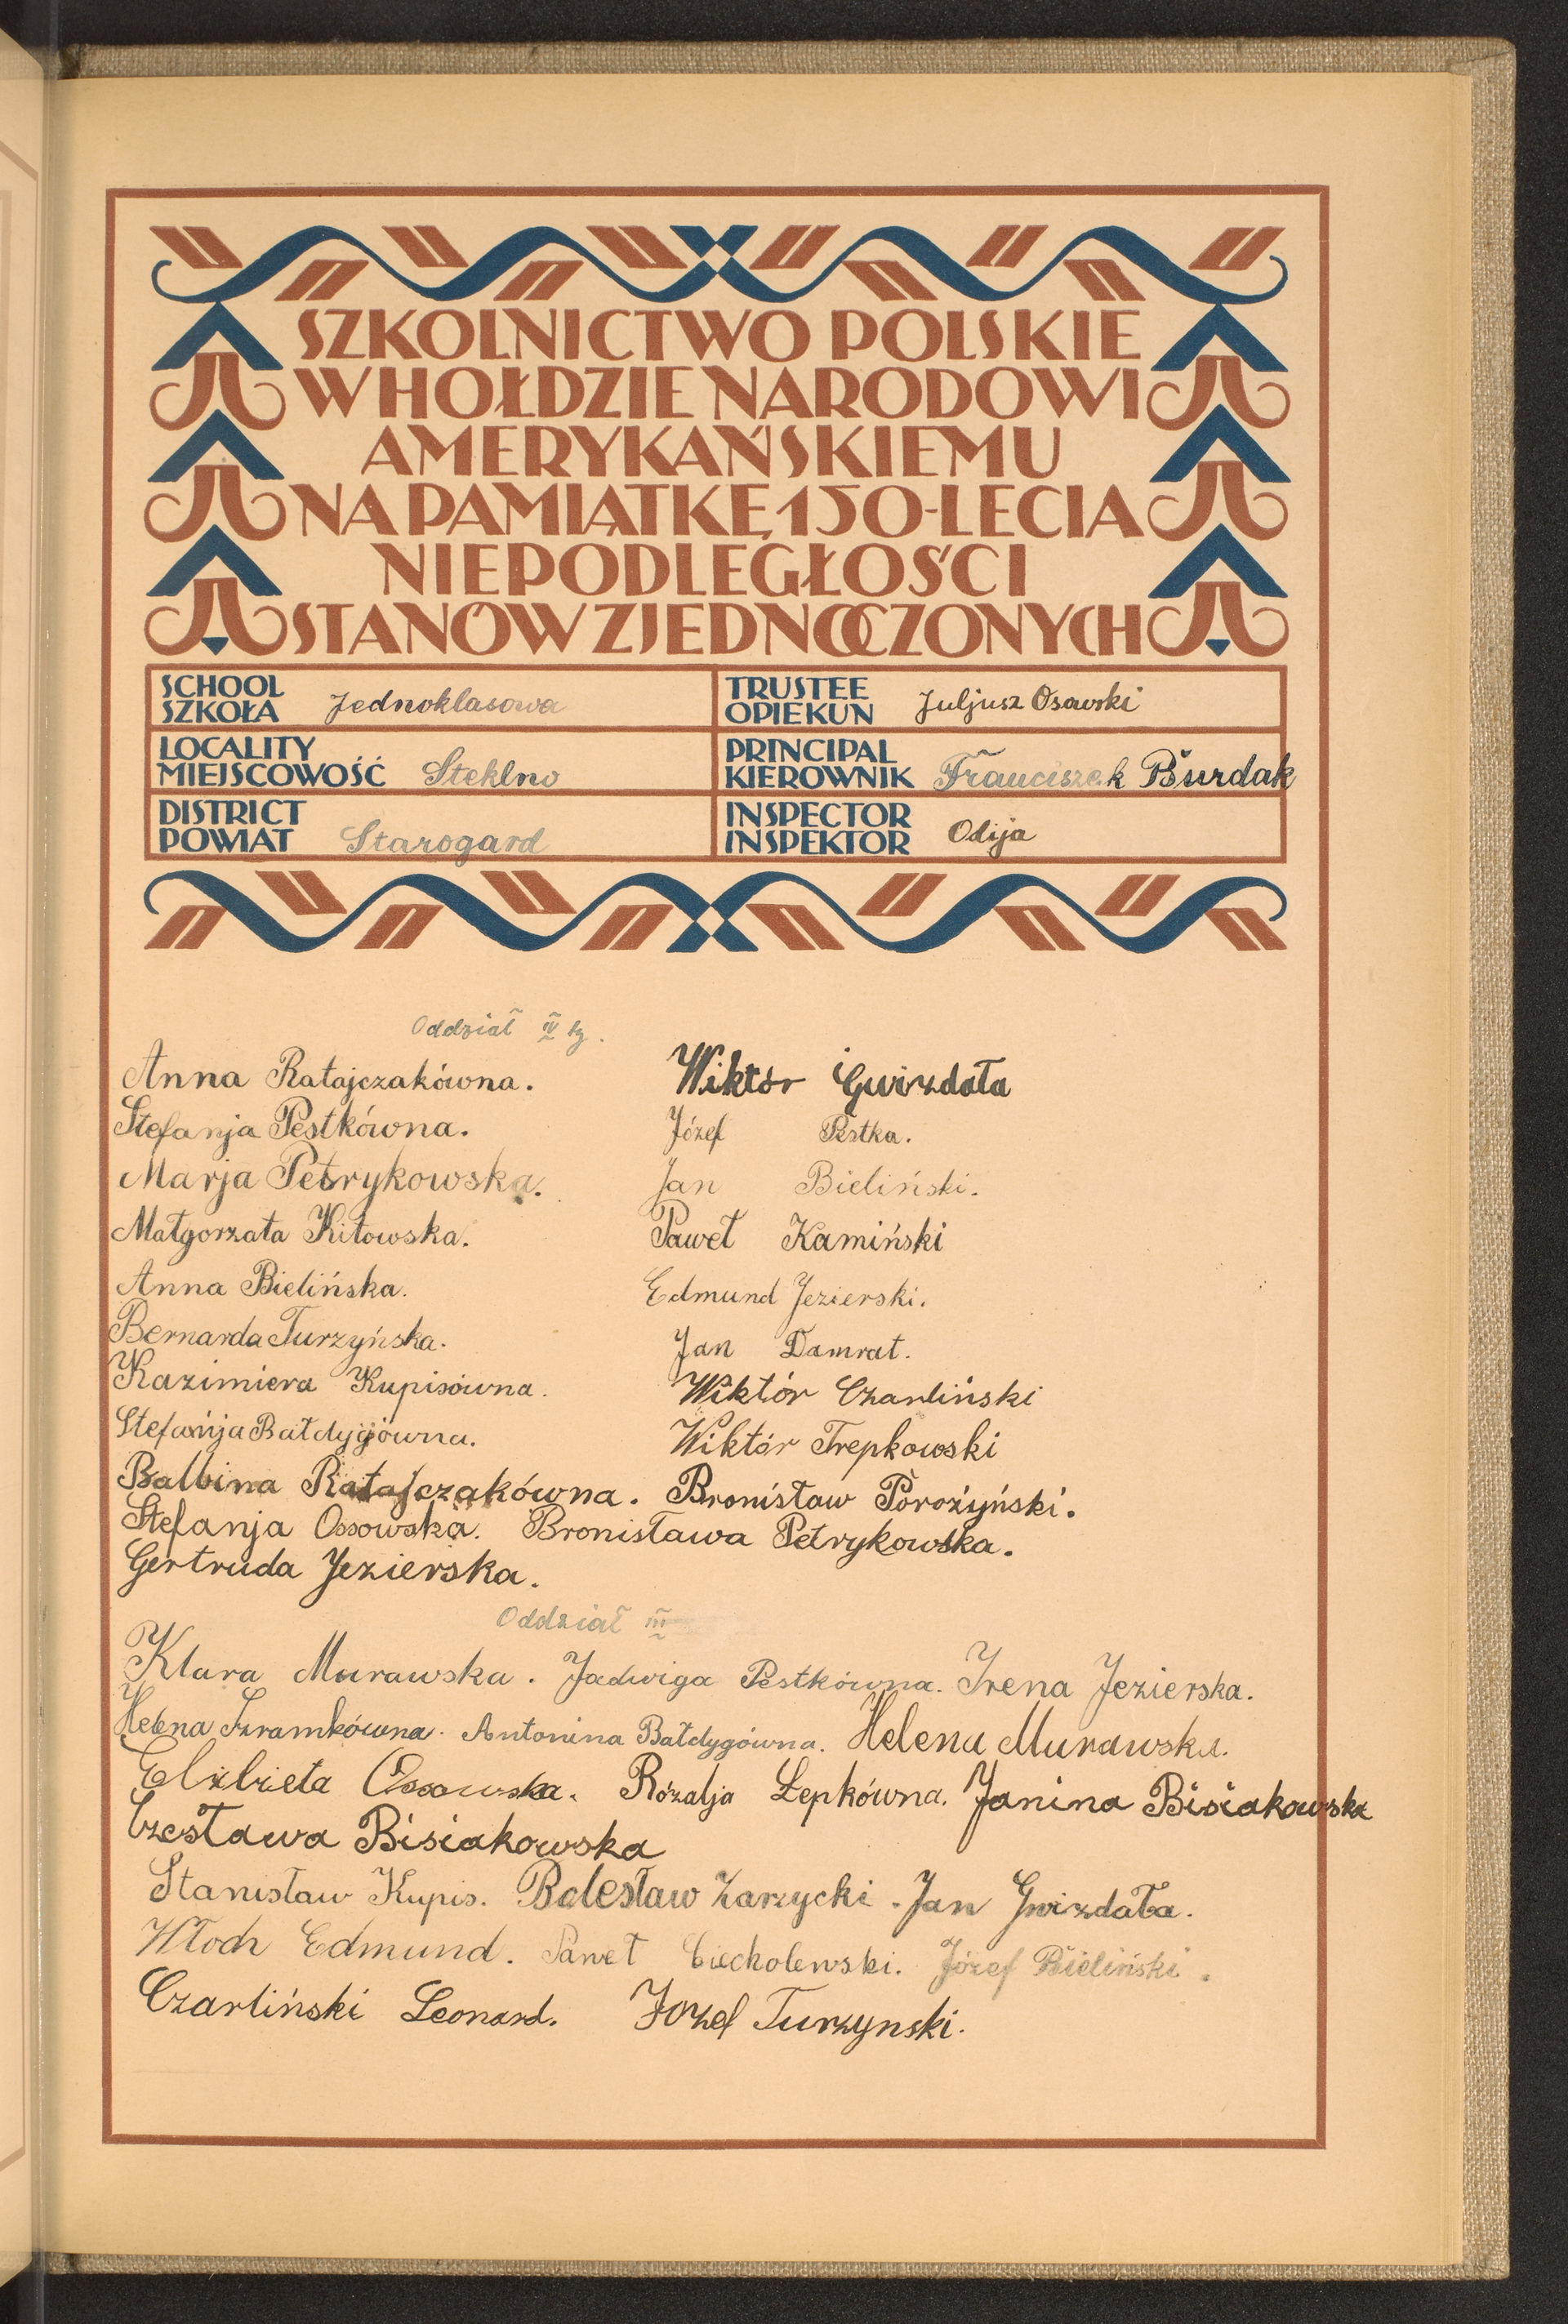 SZKOLNICTWO POLSKIE
W HOŁDZIE NARODOWI
AMERYKAŃSKIEMU
NA PAMIĄTKĘ 150-LECIA
NIEPODLEGŁOŚCI
STANÓW ZJEDNOCZONYCH
SCHOOL
SZKOŁA Jednoklasowa
TRUSTEE
OPIEKUN Juljusz Osowski
LOCALITY
MIEJSCOWOŚĆ Steklno
PRINCIPAL
KIEROWNIK Franciszek Burdak
DISTRICT
POWIAT Starogard
INSPECTOR
INSPEKTOR Odija
Oddział IV
Anna Ratajczakówna. Wiktór Gwizdała
Stefanja Pestkówna. Józef Pestka.
Marja Petrykowska. Jan Bieliński.
Małgorzata Kitowska. Paweł Kamiński
Anna Bielińska. Edmund Jezierski.
Bernarda Turzyńska. Jan Damrat.
Kazimiera Kupisówna. Wiktór Czarliński
Stefanja Bałdygówna. Wiktór Trepkowski
Balbina Ratajczakówna. Bronisław Porożyński.
Stefanja Ossowska. Bronisława Petrykowska.
Gertruda Jezierska.
Oddział III
Klara Murawska. Jadwiga Pestkówna. Irena Jezierska.
Helena Szramkówna. Antonina Bałdygówna. Helena Murawska.
Elżbieta Ossowska. Rózalja Lepkówna. Janina Bisiakowska
Czesława Bisiakowska
Stanisław Kupis. Bolesław Zarzycki. Jan Gwizdała.
Włoch Edmund. Paweł Ciecholewski. Józef Bieliński.
Czarliński Leonard. Jozef Turzynski.